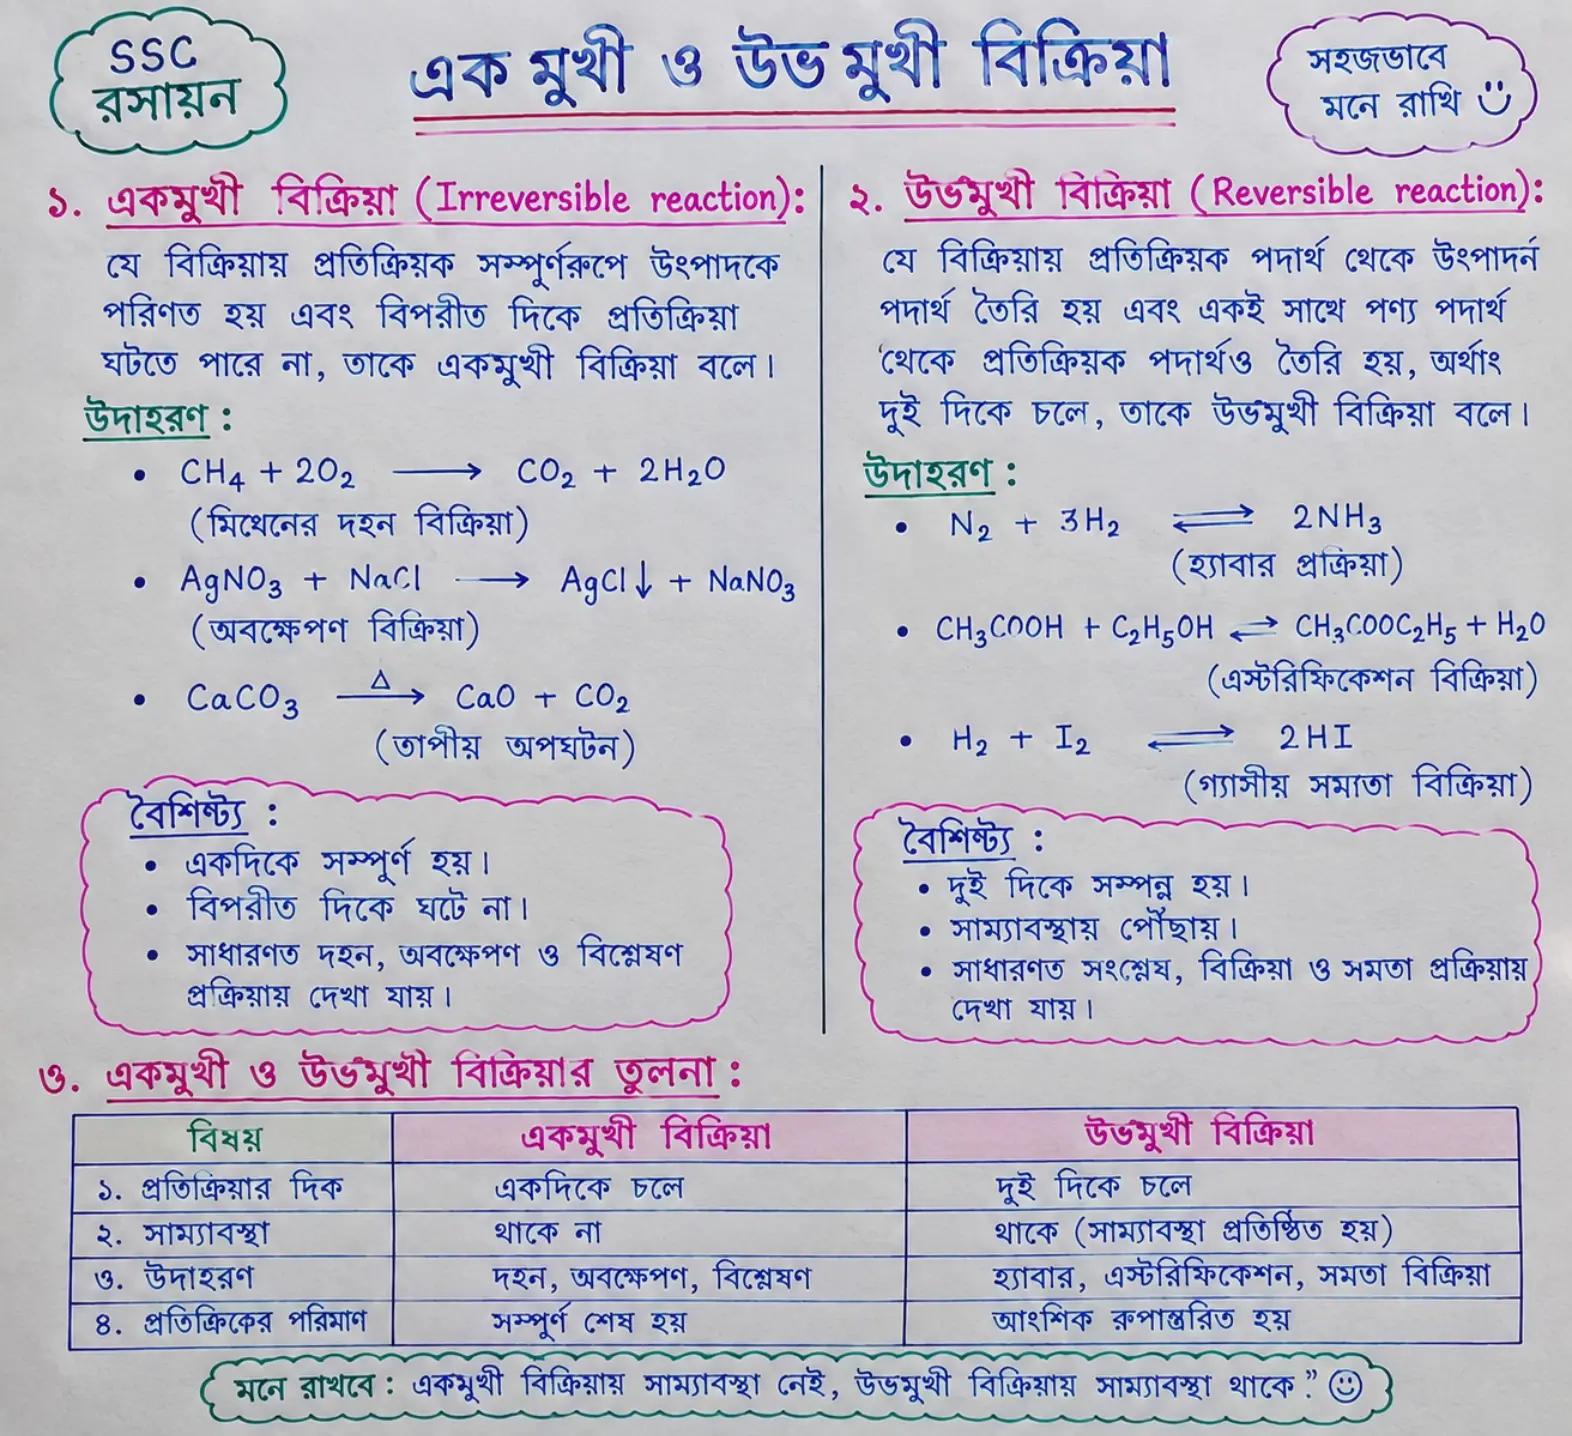 SSC
রসায়ন
একমুখী ও উভমুখী বিক্রিয়া
সহজভাবে
মনে রাখি
১. একমুখী বিক্রিয়া (Irreversible reaction):
যে বিক্রিয়ায় প্রতিক্রিয়ক সম্পুর্ণরুপে উৎপাদকে
পরিণত হয় এবং বিপরীত দিকে প্রতিক্রিয়া
ঘটতে পারে না, তাকে একমুখী বিক্রিয়া বলে।
উদাহরণ :
• CH₄ + 2O₂ ⟶ CO₂ + 2H₂O
(মিথেনের দহন বিক্রিয়া)
• AgNO₃ + NaCl ⟶ AgCl↓ + NaNO₃
(অবক্ষেপণ বিক্রিয়া)
• CaCO₃ —Δ→ CaO + CO₂
(তাপীয় অপঘটন)
বৈশিষ্ট্য :
• একদিকে সম্পূর্ণ হয়।
• বিপরীত দিকে ঘটে না।
• সাধারণত দহন, অবক্ষেপণ ও বিশ্লেষণ
প্রক্রিয়ায় দেখা যায়।
২. উভমুখী বিক্রিয়া (Reversible reaction):
যে বিক্রিয়ায় প্রতিক্রিয়ক পদার্থ থেকে উৎপাদর্ন
পদার্থ তৈরি হয় এবং একই সাথে পণ্য পদার্থ
থেকে প্রতিক্রিয়ক পদার্থও তৈরি হয়, অর্থাৎ
দুই দিকে চলে, তাকে উভমুখী বিক্রিয়া বলে।
উদাহরণ :
• N₂ + 3H₂ ⇌ 2NH₃
(হ্যাবার প্রক্রিয়া)
• CH₃COOH + C₂H₅OH ⇌ CH₃COOC₂H₅ + H₂O
(এস্টরিফিকেশন বিক্রিয়া)
• H₂ + I₂ ⇌ 2HI
(গ্যাসীয় সমতা বিক্রিয়া)
বৈশিষ্ট্য :
• দুই দিকে সম্পন্ন হয়।
• সাম্যাবস্থায় পৌঁছায়।
• সাধারণত সংশ্লেষ, বিক্রিয়া ও সমতা প্রক্রিয়ায়
দেখা যায়।
৩. একমুখী ও উভমুখী বিক্রিয়ার তুলনা :
বিষয় একমুখী বিক্রিয়া উভমুখী বিক্রিয়া
১. প্রতিক্রিয়ার দিক একদিকে চলে দুই দিকে চলে
২. সাম্যাবস্থা থাকে না থাকে (সাম্যাবস্থা প্রতিষ্ঠিত হয়)
৩. উদাহরণ দহন, অবক্ষেপণ, বিশ্লেষণ হ্যাবার, এস্টরিফিকেশন, সমতা বিক্রিয়া
৪. প্রতিক্রিকের পরিমাণ সম্পুর্ণ শেষ হয় আংশিক রুপান্তরিত হয়
মনে রাখবে : একমুখী বিক্রিয়ায় সাম্যাবস্থা নেই, উভমুখী বিক্রিয়ায় সাম্যাবস্থা থাকে।”